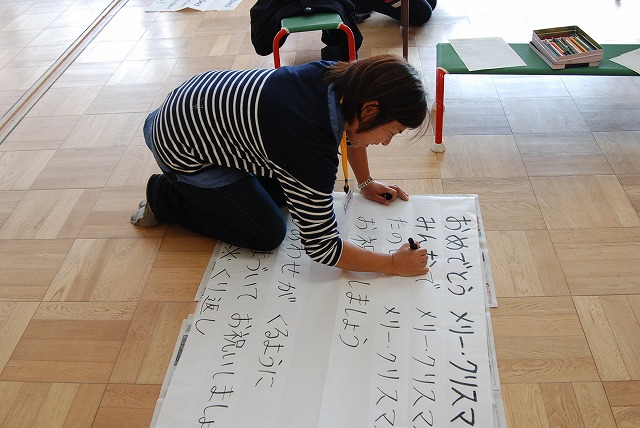 おめでとう メリー・クリスマ
みんなで メリー・クリスマ
たの メリー・クリスマ
お祝 しましょう
あわせが くるように
づいて お祝いしましょ
※くり返し